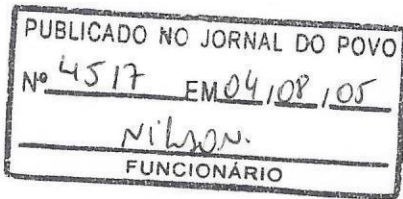 PUBLICADO NO JORNAL DO POVO
Nº 4517 EM 04/08/05
Nilson.
FUNCIONÁRIO